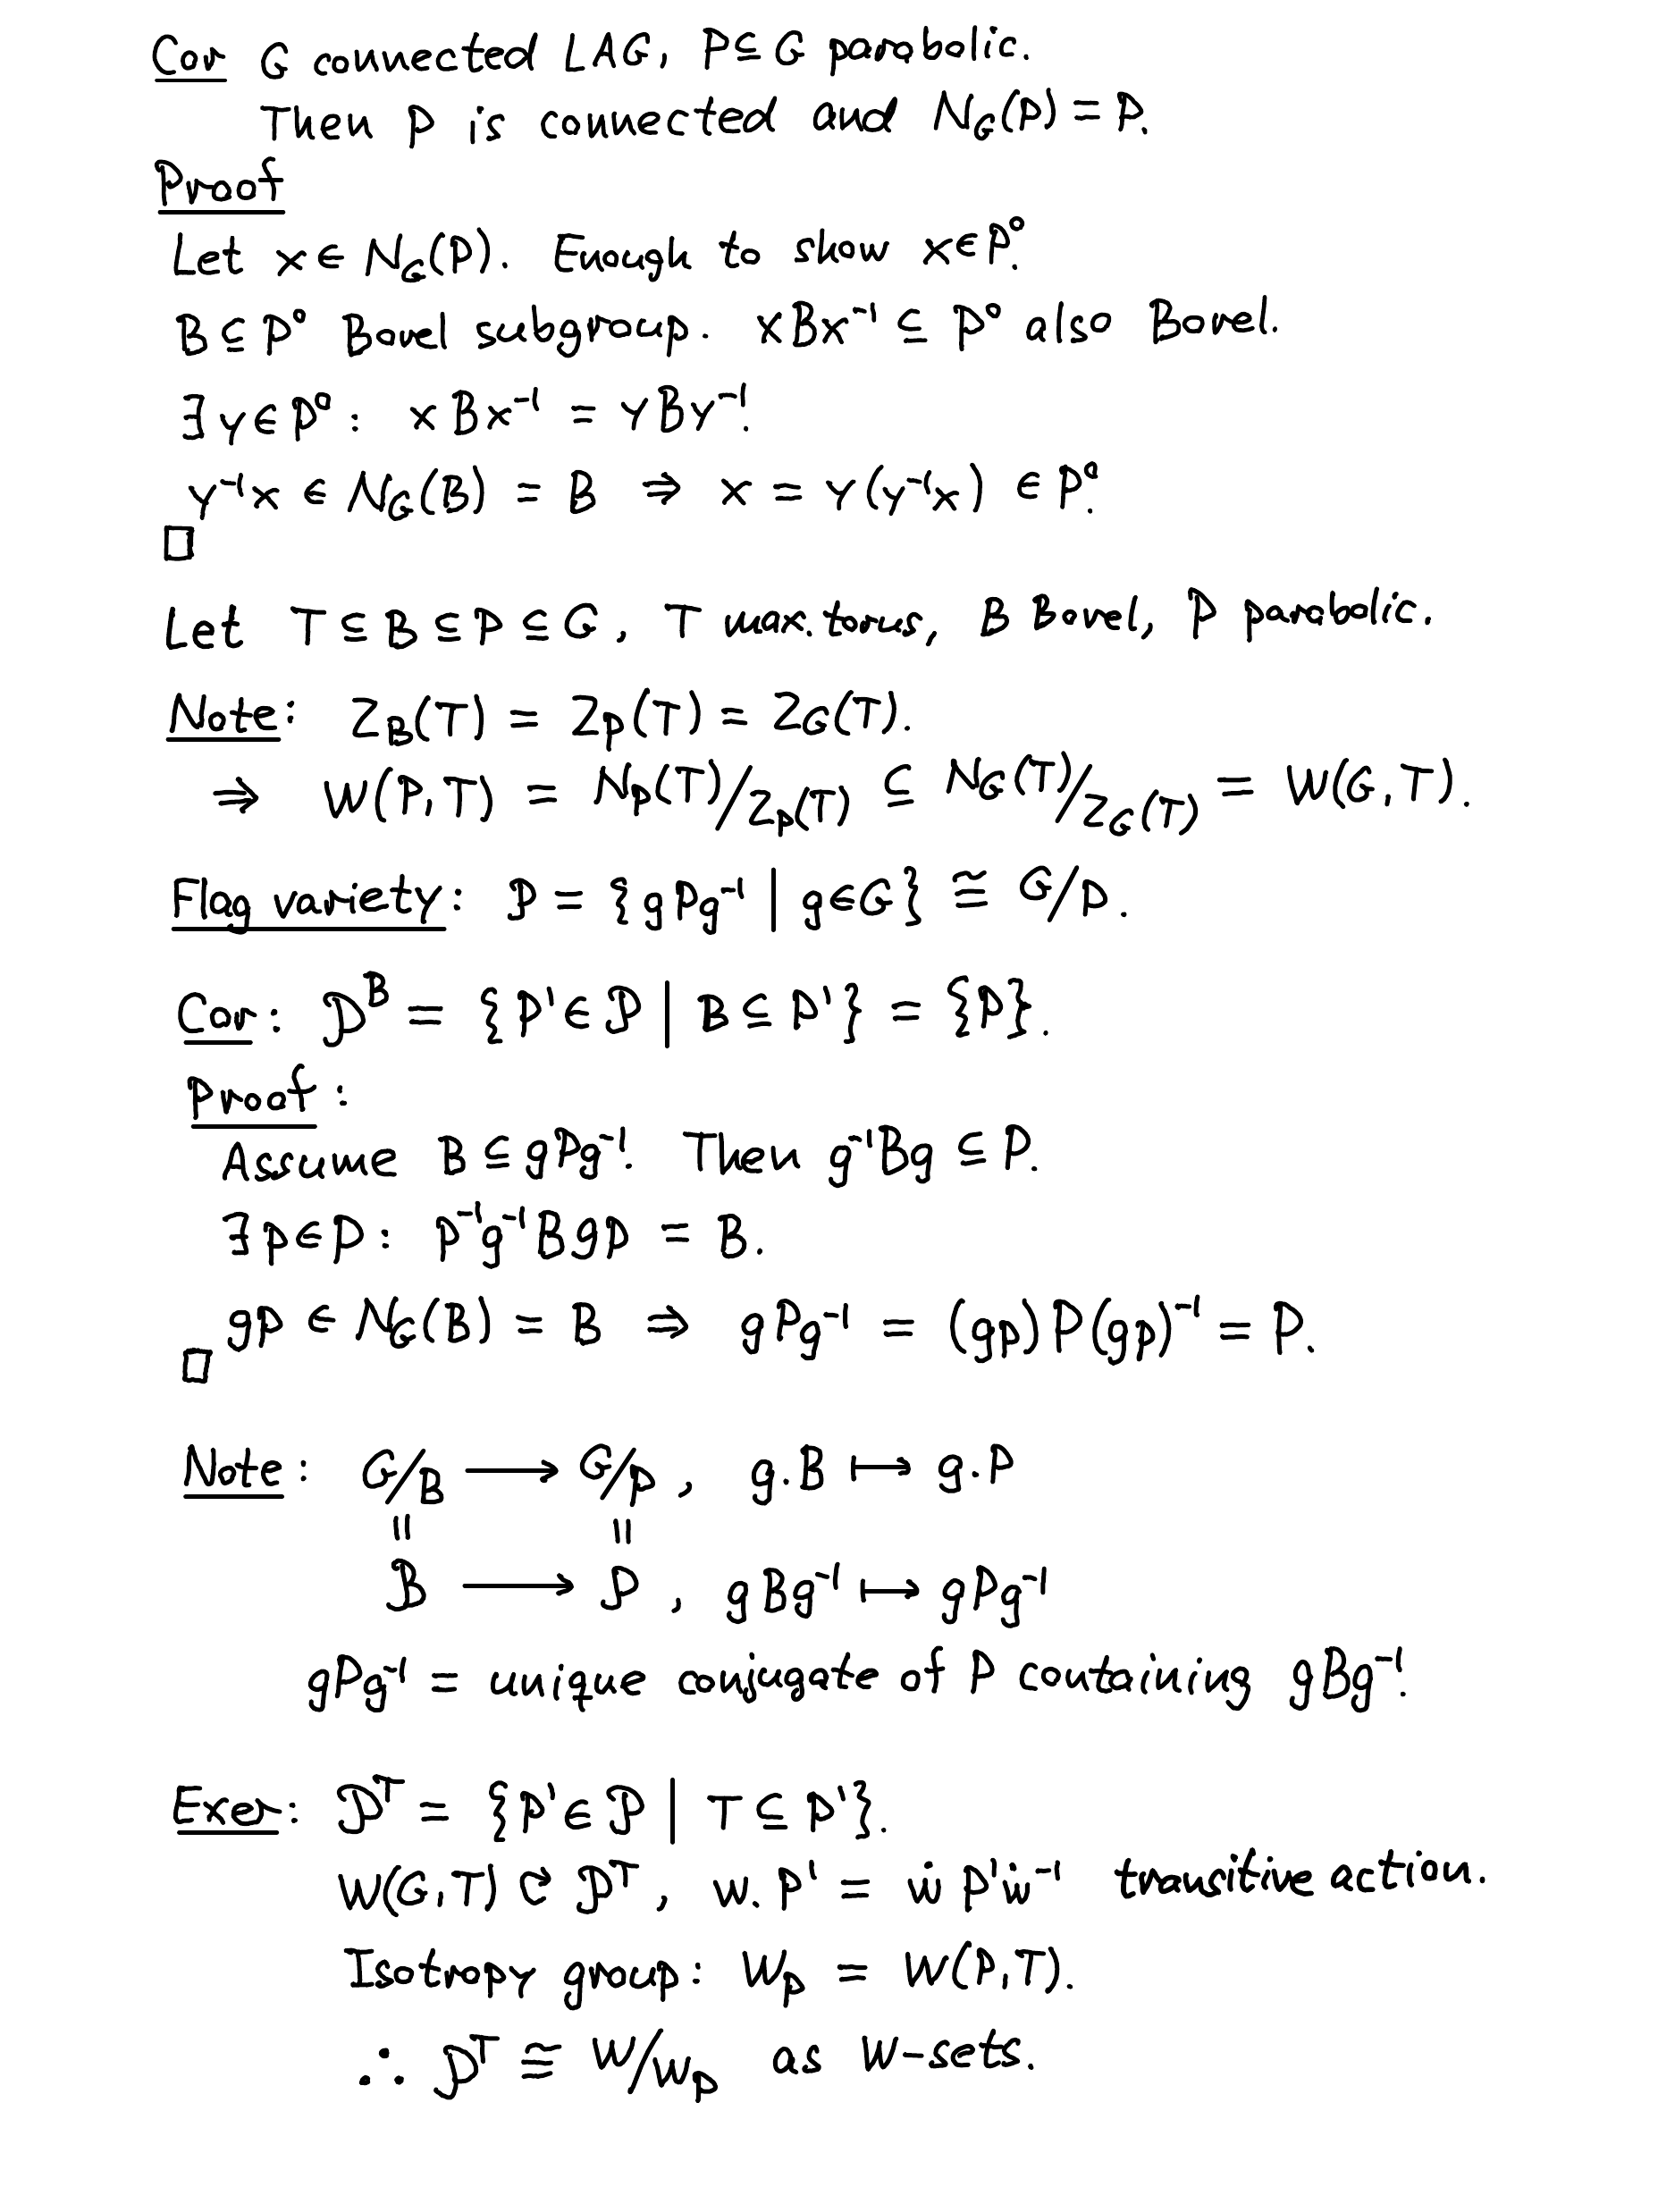 Cor G connected LAG, P ⊆ G parabolic.
Then P is connected and N_G(P) = P.
Proof
Let x ∈ N_G(P). Enough to show x ∈ P°.
B ⊆ P° Borel subgroup. xBx⁻¹ ⊆ P° also Borel.
∃ y ∈ P° : xBx⁻¹ = yBy⁻¹.
y⁻¹x ∈ N_G(B) = B ⇒ x = y(y⁻¹x) ∈ P°.
□
Let T ⊆ B ⊆ P ⊆ G, T max. torus, B Borel, P parabolic.
Note: Z_B(T) = Z_P(T) = Z_G(T).
⇒ W(P,T) = N_P(T)/Z_P(T) ⊆ N_G(T)/Z_G(T) = W(G,T).
Flag variety: 𝒫 = {gPg⁻¹ | g∈G} ≅ G/P.
Cor: 𝒫^B = {P' ∈ 𝒫 | B ⊆ P'} = {P}.
Proof:
Assume B ⊆ gPg⁻¹. Then g⁻¹Bg ⊆ P.
∃ p∈P: p⁻¹g⁻¹Bgp = B.
gp ∈ N_G(B) = B ⇒ gPg⁻¹ = (gp)P(gp)⁻¹ = P.
□
Note: G/B ⟶ G/P, g.B ↦ g.P
= =
ℬ ⟶ 𝒫, gBg⁻¹ ↦ gPg⁻¹
gPg⁻¹ = unique conjugate of P containing gBg⁻¹.
Exer: 𝒫^T = {P' ∈ 𝒫 | T ⊆ P'}.
W(G,T) ↻ 𝒫^T, w.P' = ẇP'ẇ⁻¹ transitive action.
Isotropy group: W_P = W(P,T).
∴ 𝒫^T ≅ W/W_P as W-sets.